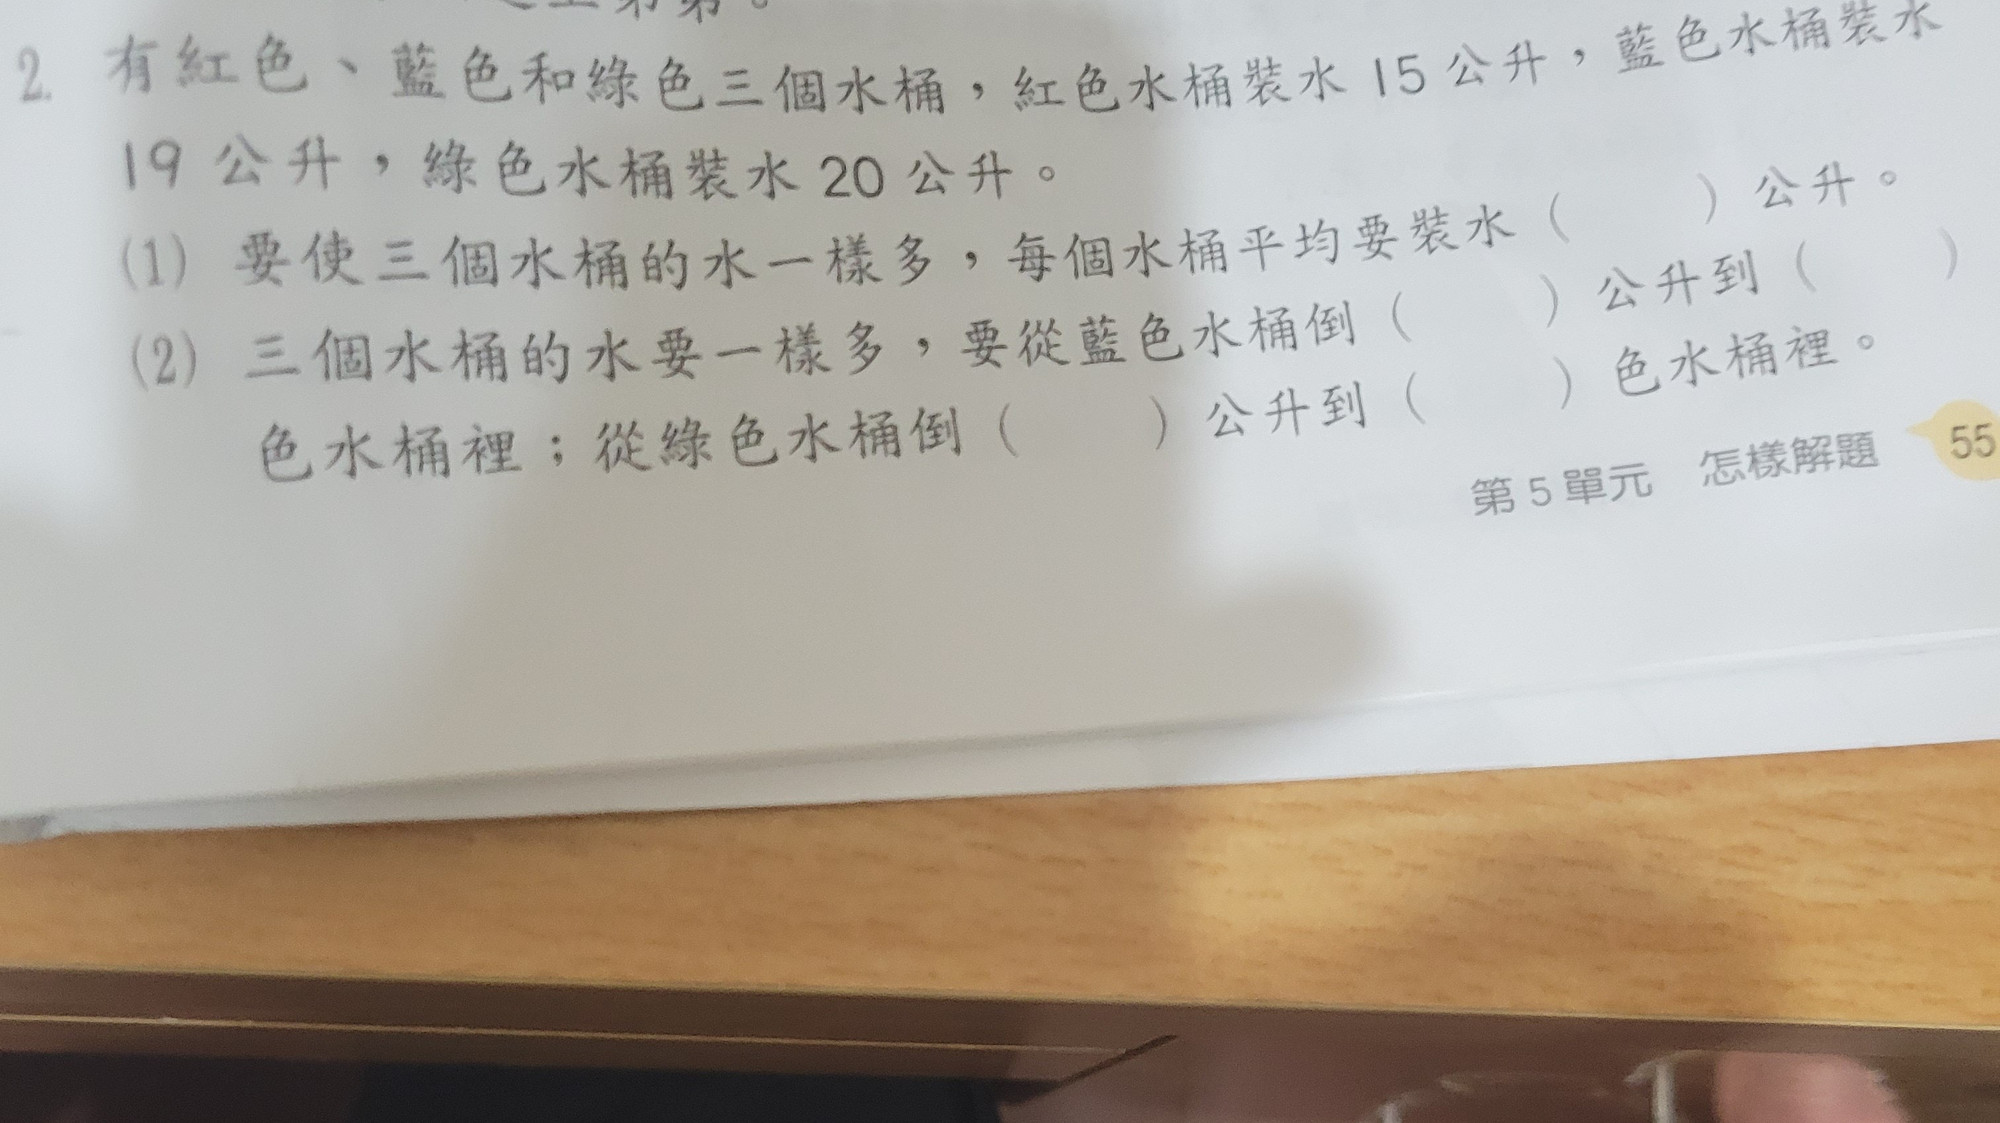 2. 有紅色、藍色和綠色三個水桶，紅色水桶裝水 15 公升，藍色水桶裝水
19 公升，綠色水桶裝水 20 公升。
(1) 要使三個水桶的水一樣多，每個水桶平均要裝水（　　）公升。
(2) 三個水桶的水要一樣多，要從藍色水桶倒（　　）公升到（　　）
色水桶裡；從綠色水桶倒（　　）公升到（　　）色水桶裡。
第 5 單元　怎樣解題 55